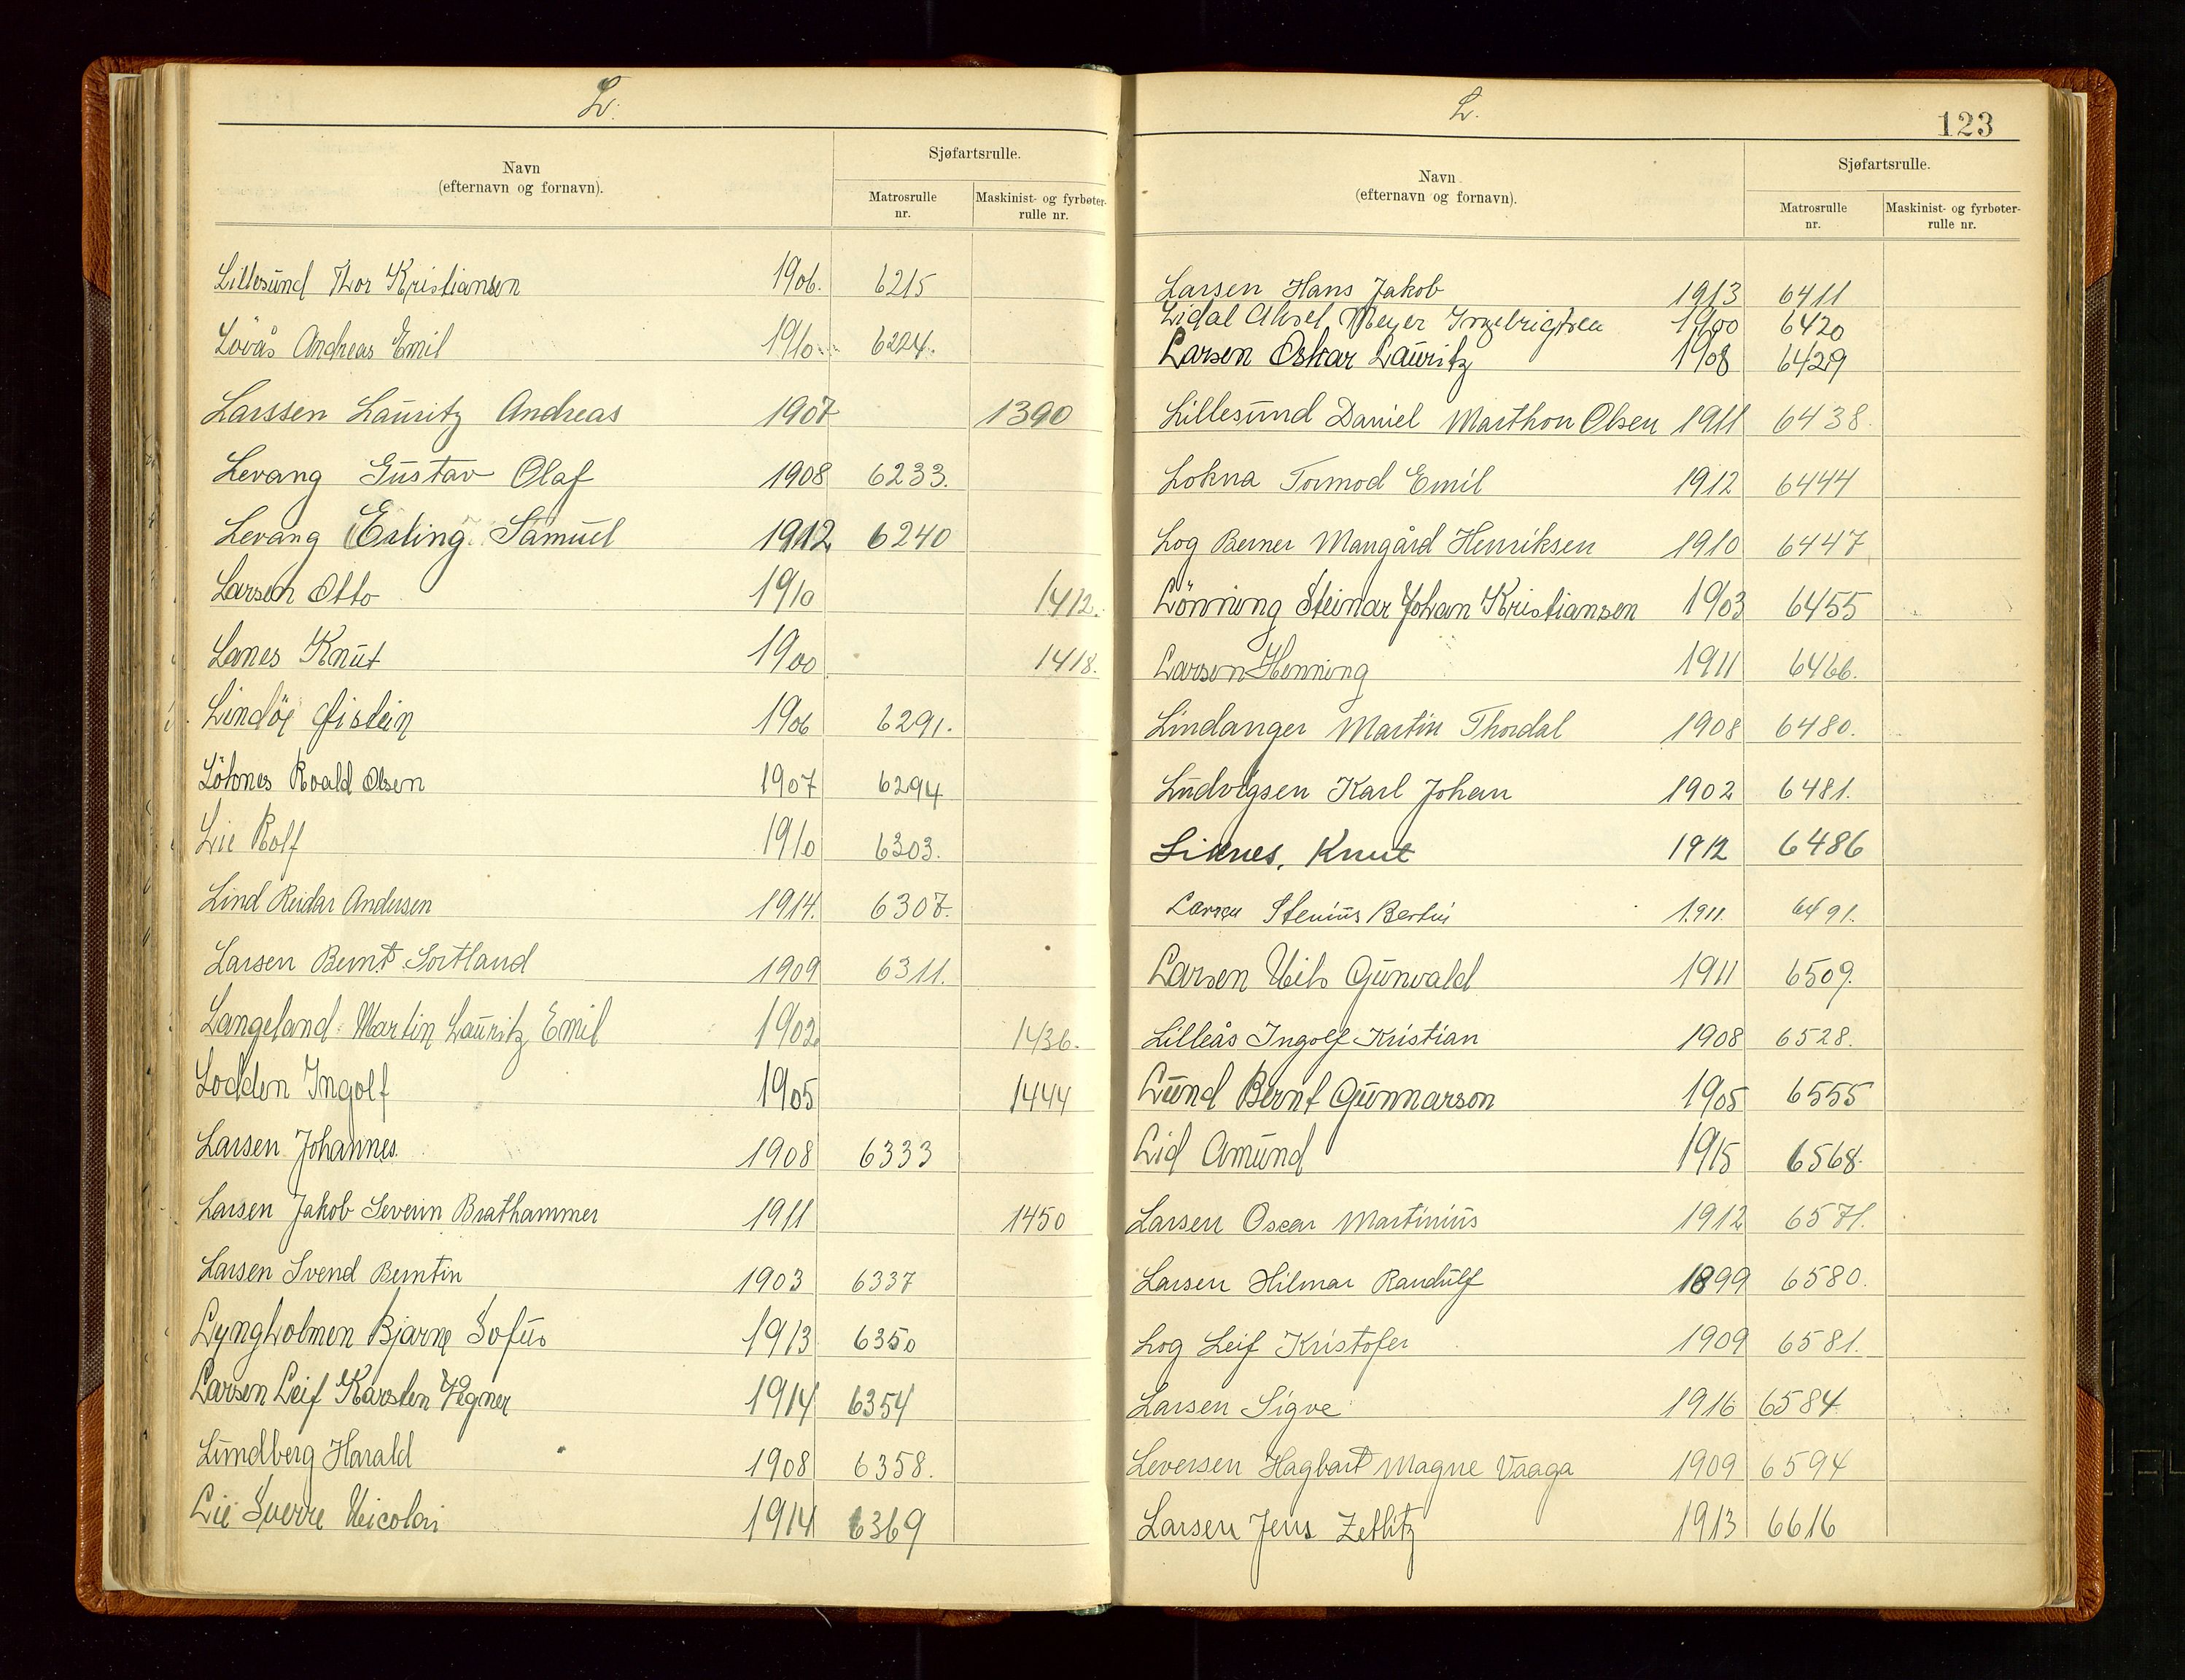 L.
Navn
(efternavn og fornavn).
Sjøfartsrulle.
Matrosrulle
nr.
Maskinist- og fyrbøter-
rulle nr.
Lillesund Thor Kristiansen 1906. 6215
Lövås Andreas Emil 1910 6224.
Larssen Lauritz Andreas 1907 1390
Levang Gustav Olaf 1908 6233.
Levang Erling Samuel 1912 6240
Larsen Otto 1910 1412.
Lanes Knut 1900 1418.
Lindöe Øistein 1906 6291.
Löknes Roald Olsen 1907 6294
Lie Rolf 1910 6303.
Lind Reidar Andersen 1914. 6307.
Larsen Bernt Sortland 1909 6311.
Langeland Martin Lauritz Emil 1902 1436.
Lodden Ingolf 1905 1444
Larsen Johannes. 1908 6333
Larsen Jakob Severin Brathammer 1911 1450
Larsen Svend Berntin 1903 6337
Lyngholmen Bjarne Sofus 1913 6350
Larsen Leif Karsten Wegner 1914 6354
Lundberg Harald 1908 6358.
Lie Sverre Nicolai 1914 6369
L.
123
Navn
(efternavn og fornavn).
Sjøfartsrulle.
Matrosrulle
nr.
Maskinist- og fyrbøter-
rulle nr.
Larsen Hans Jakob 1913 6411
Lidal Aksel Meyer Ingebrigtsen 1900 6420
Larsen Oskar Lauritz 1908 6429
Lillesund Daniel Marthon Olsen 1911 6438.
Lokna Tormod Emil 1912 6444
Log Berner Mangård Henriksen 1910 6447
Lönning Steinar Johan Kristiansen 1903 6455
Larsen Henning 1911 6466.
Lindanger Martin Thordal 1908 6480.
Ludvigsen Karl Johan 1902 6481.
Liknes, Knut 1912 6486
Larsen Stenius Bertin 1911. 6491.
Larsen Nils Gunvald 1911 6509.
Lilleås Ingolf Kristian 1908 6528.
Lund Bernt Gunnarson 1905 6555
Lid Amund 1915 6568.
Larsen Oscar Martinius 1912 6571.
Larsen Hilmar Randulf 1899 6580.
Log Leif Kristofer 1909 6581.
Larsen Sigve 1916 6584
Leversen Hagbart Magne Vaaga 1909 6594
Larsen Jens Zetlitz 1913 6616